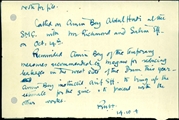 Note for file.
Called on Amin Bey Abdel Hadi at the
SMC. with Mr Richmond and Salim Eff.
on Oct. 19th.
Reminded Amin Bey of the temporary
measures recommended by for reducing
leakage in the west side of the Dome this year.
Amin Bey instructed Arif Eff. to bring up the
estimate for the give it passed with the
other works.
19.10.